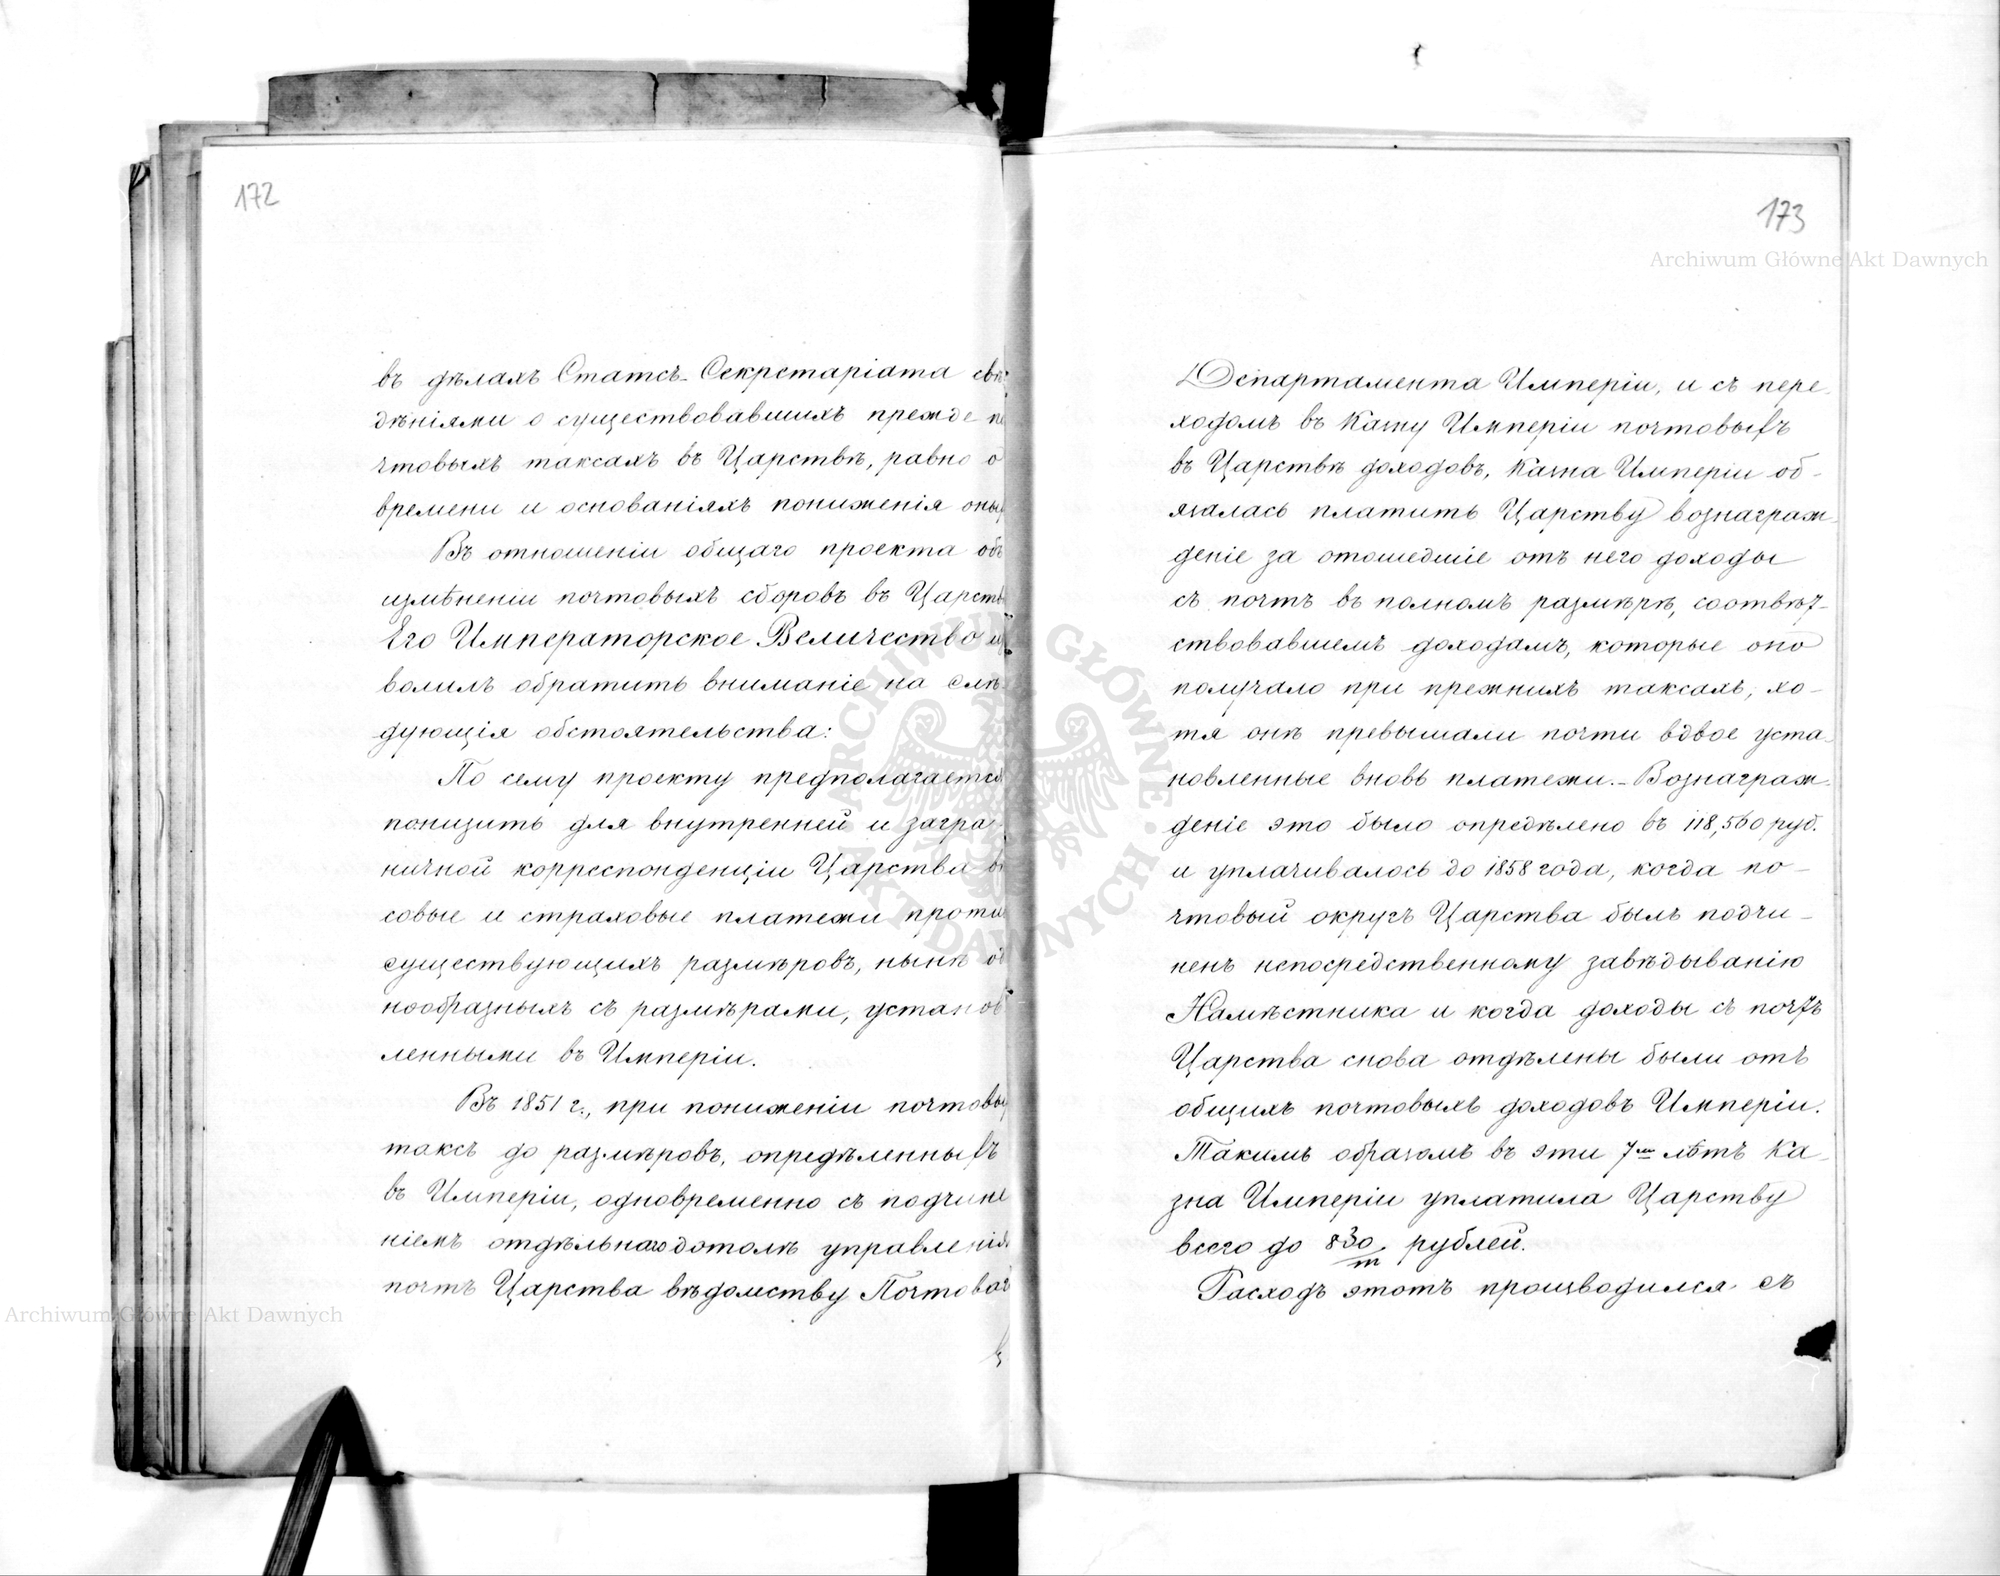 172
въ дѣлахъ Статсъ-Секретаріата свѣ-
дѣніями о существовавшихъ прежде по
чтовыхъ таксахъ въ Царствѣ, равно о
времени и основаніяхъ пониженія оныхъ
Въ отношеніи общаго проекта объ
измѣненіи почтовыхъ сборовъ въ Царств
Его Императорское Величество из
волилъ обратить вниманіе на слѣ-
дующія обстоятельства:
По сему проекту предполагается
понизить для внутренней и загра-
ничной корреспонденціи Царства вѣ
совые и страховые платежи против
существующихъ размѣровъ, нынѣ од
нообразныхъ съ размѣрами, установ
ленными въ Имперіи.
Въ 1851 г., при пониженіи почтовых
таксъ до размѣровъ, опредѣленныхъ
въ Имперіи, одновременно съ подчине
ніемъ отдѣльнаго дотолѣ управленія
почтъ Царства вѣдомству Почтоваго
173
Департамента Имперіи, и съ пере-
ходомъ въ Казну Имперіи почтовыхъ
въ Царствѣ доходовъ, Казна Имперіи об-
язалась платить Царству вознаграж-
деніе за отошедшіе отъ него доходы
съ почтъ въ полномъ размѣрѣ, соотвѣт-
ствовавшемъ доходамъ, которые оно
получало при прежнихъ таксахъ, хо-
тя онѣ превышали почти вдвое уста-
новленные вновь платежи.- Вознаграж-
деніе это было опредѣлено въ 118,560 руб.
и уплачивалось до 1858 года, когда по-
чтовый округъ Царства былъ подчи-
ненъ непосредственному завѣдыванію
Намѣстника и когда доходы съ почтъ
Царства снова отдѣлены были отъ
общихъ почтовыхъ доходовъ Имперіи.
Такимъ образомъ въ эти 7ми лѣтъ Ка-
зна Имперіи уплатила Царству
всего до 830/m рублей.
Расходъ этотъ производился съ
Archiwum Główne Akt Dawnych
Archiwum Główne Akt Dawnych
ARCHIWUM GŁÓWNE AKT DAWNYCH